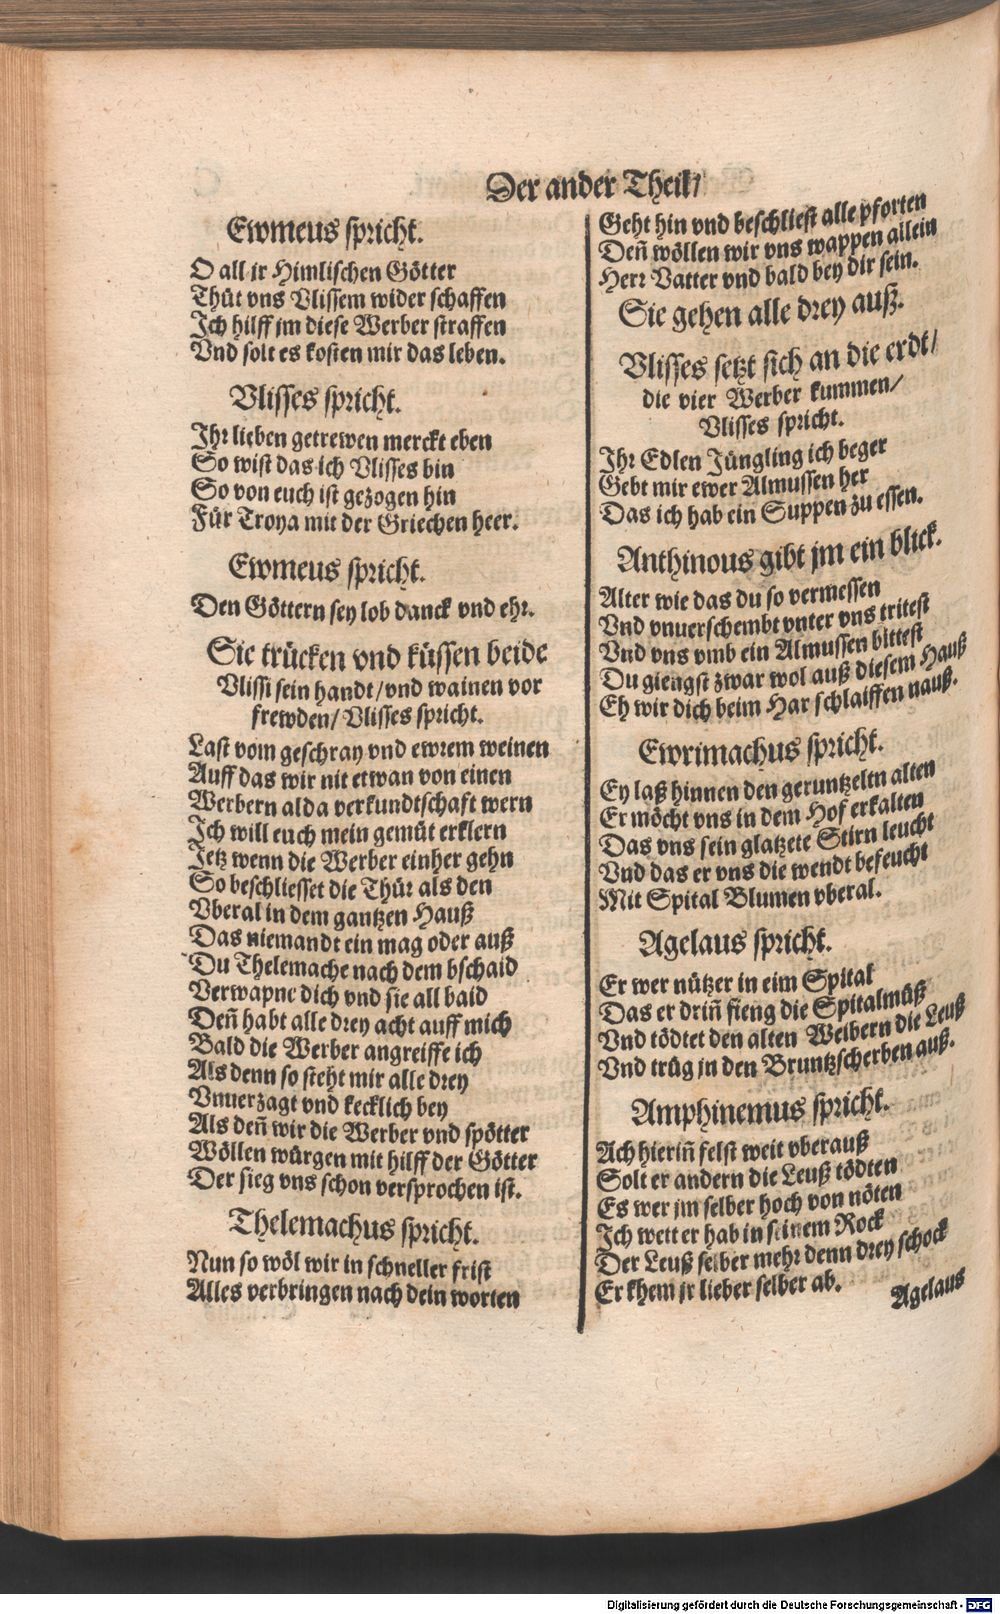 Der ander Theil/
Ewmeus spricht.
O all ir Himlischen Götter
Thůt vns Vlissem wider schaffen
Ich hilff jm diese Werber straffen
Vnd solt es kosten mir das leben.
Vlisses spricht.
Ihr lieben getrewen merckt eben
So wist das ich Vlisses bin
So von euch ist gezogen hin
Für Troya mit der Griechen heer.
Ewmeus spricht.
Den Göttern sey lob danck vnd ehr.
Sie trücken vnd küssen beide
Vlissi sein handt/vnd wainen vor
frewden/Vlisses spricht.
Last vom geschray vnd ewrem weinen
Auff das wir nit etwan von einen
Werbern alda verkundtschaft wern
Ich will euch mein gemüt erklern
Jetz wenn die Werber einher gehn
So beschliesset die Thür als den
Vberal in dem gantzen Hauß
Das niemandt ein mag oder auß
Du Thelemache nach dem bschaid
Verwapne dich vnd sie all baid
Deñ habt alle drey acht auff mich
Bald die Werber angreiffe ich
Als denn so steht mir alle drey
Vnuerzagt vnd kecklich bey
Als deñ wir die Werber vnd spötter
Wöllen würgen mit hilff der Götter
Der sieg vns schon versprochen ist.
Thelemachus spricht.
Nun so wöl wir in schneller frist
Alles verbringen nach dein worten
Geht hin vnd beschliest alle pforten
Deñ wöllen wir vns wappen allein
Herr Vatter vnd bald bey dir sein.
Sie gehen alle drey auß.
Vlisses setzt sich an die erdt/
die vier Werber kummen/
Vlisses spricht.
Ihr Edlen Jüngling ich beger
Gebt mir ewer Almussen her
Das ich hab ein Suppen zu essen.
Anthinous gibt jm ein blick.
Alter wie das du so vermessen
Vnd vnuerschembt vnter vns tritest
Vnd vns vmb ein Almussen bittest
Du giengst zwar wol auß diesem Hauß
Eh wir dich beim Har schlaiffen nauß.
Ewrimachus spricht.
Ey laß hinnen den geruntzeltn alten
Er möcht vns in dem Hof erkalten
Das vns sein glatzete Stirn leucht
Vnd das er vns die wendt befeucht
Mit Spital Blumen vberal.
Agelaus spricht.
Er wer nützer in eim Spital
Das er driñ fieng die Spitalmüß
Vnd tödtet den alten Weibern die Leuß
Vnd trüg in den Bruntzscherben auß.
Amphinemus spricht.
Ach hieriñ felst weit vberauß
Solt er andern die Leuß tödten
Es wer jm selber hoch von nöten
Ich wett er hab in seinem Rock
Der Leuß selber mehr denn drey schock
Er khem jr lieber selber ab.
Agelaus
Digitalisierung gefördert durch die Deutsche Forschungsgemeinschaft - DFG